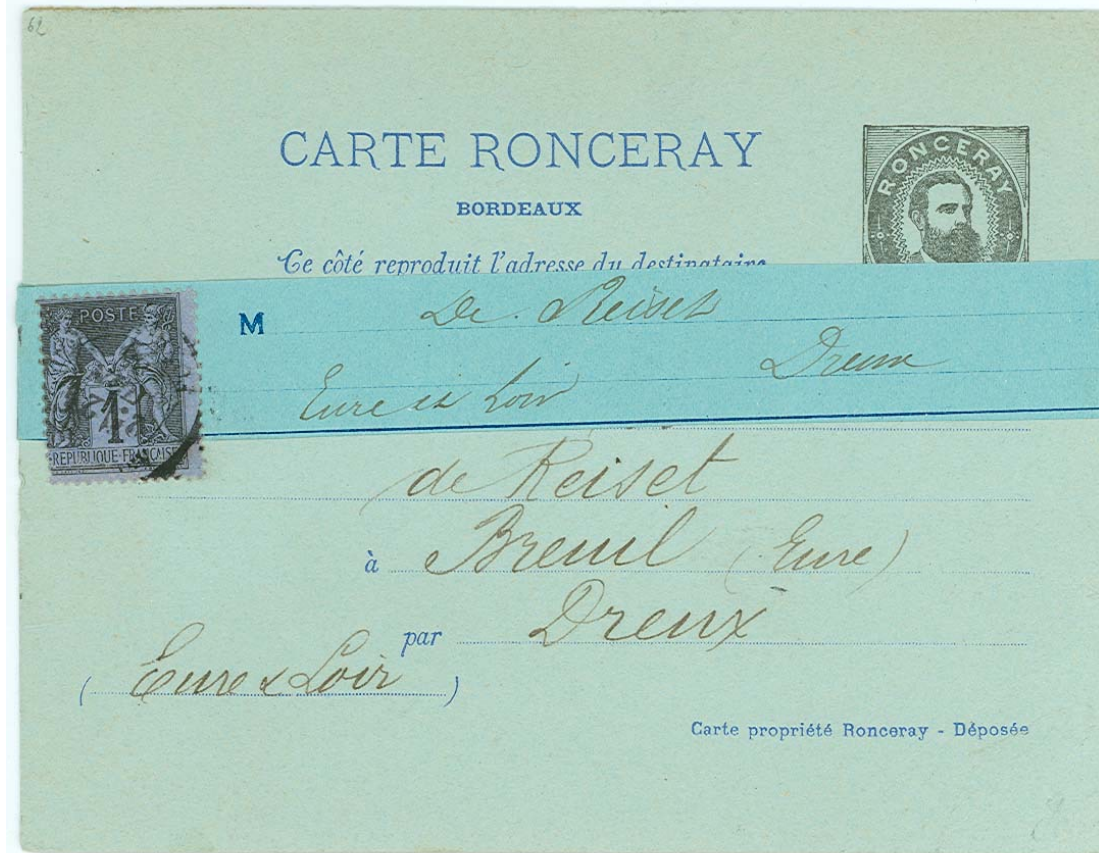 62
CARTE RONCERAY
BORDEAUX
RONCERAY
Ce côté reproduit l'adresse du destinataire
POSTE
1
REPUBLIQUE FRANCAISE
M De Reiset
Eure et Loir Dreux
de Reiset
à Breuil (Eure)
par Dreux
(Eure & Loir)
Carte propriété Ronceray - Déposée